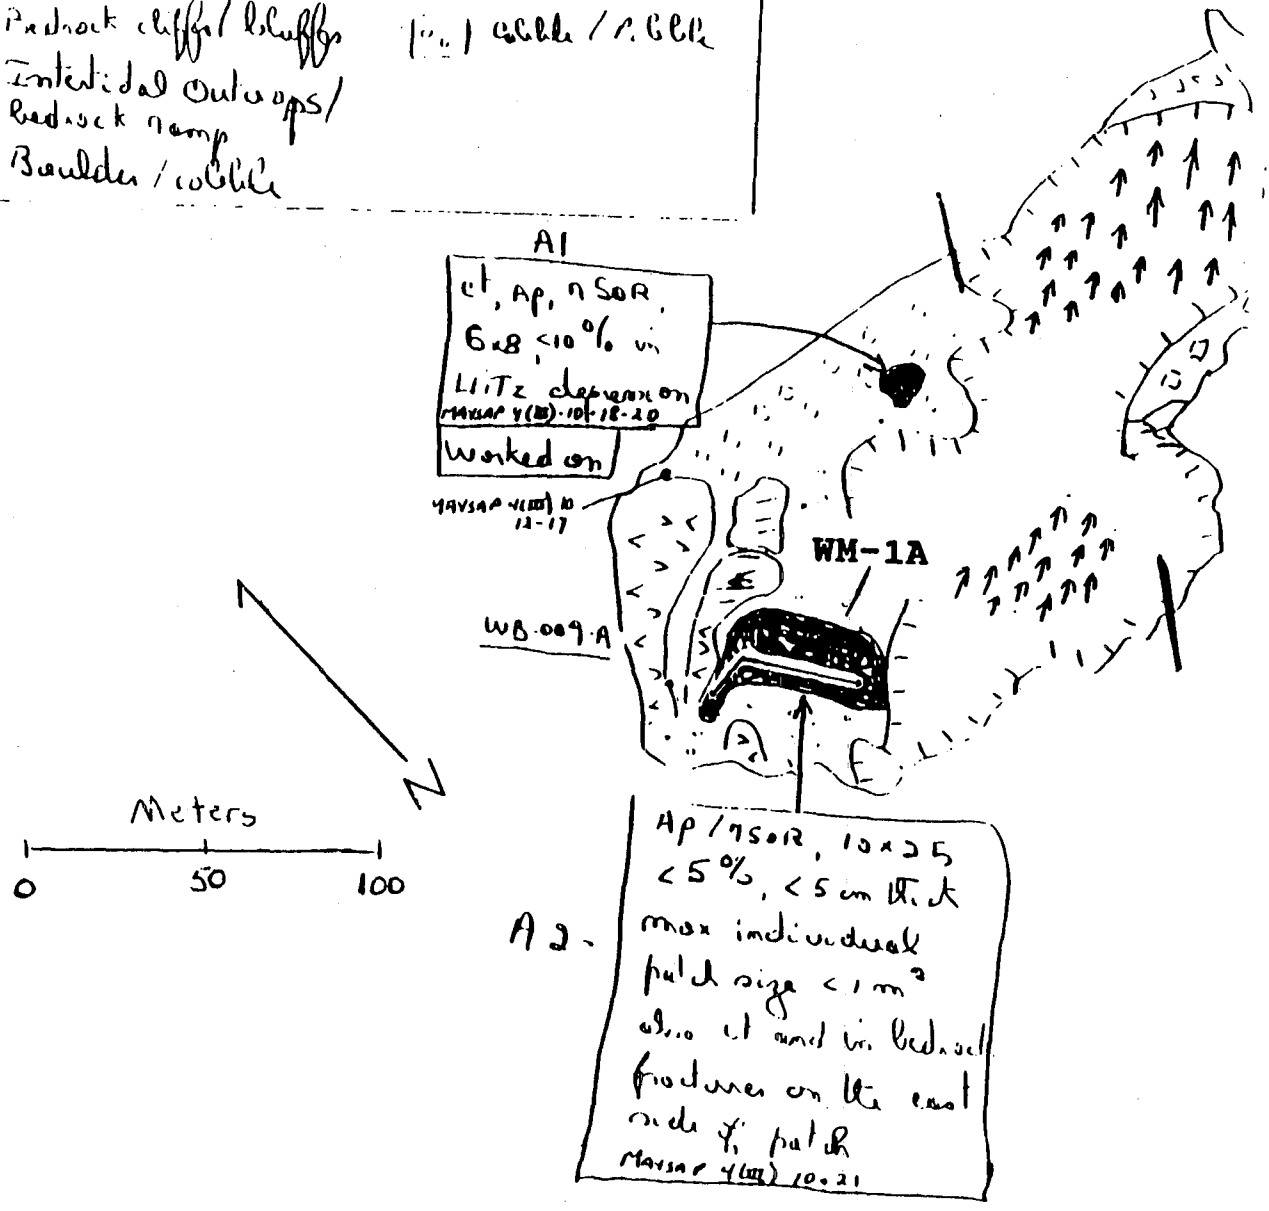 Bedrock cliffs/bluffs cobble/pebble
Intertidal Outcrops/
bedrock ramp
Boulder/cobble
A1
ct, AP, MSOR,
6x8, <10% in
UITZ depression
MAYSAP 4(III)-10-18-20
Worked on
MAYSAP 4(III) 10
12-17
WM-1A
WB.009.A
N
Meters
0 50 100
AP/MSOR, 10x25
<5%, <5 cm thick
A2-
max individual
patch size <1 m²
also ct and in bedrock
fractures on the east
side of patch
MAYSAP 4(III) 10.21